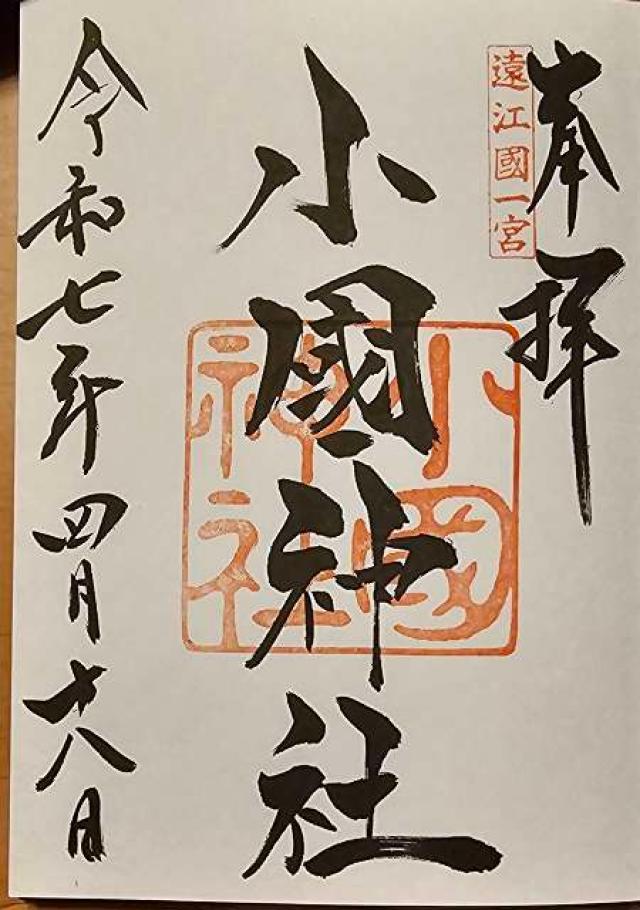 奉拝
遠江國一宮
小國神社
小國神社
令和七年四月十八日